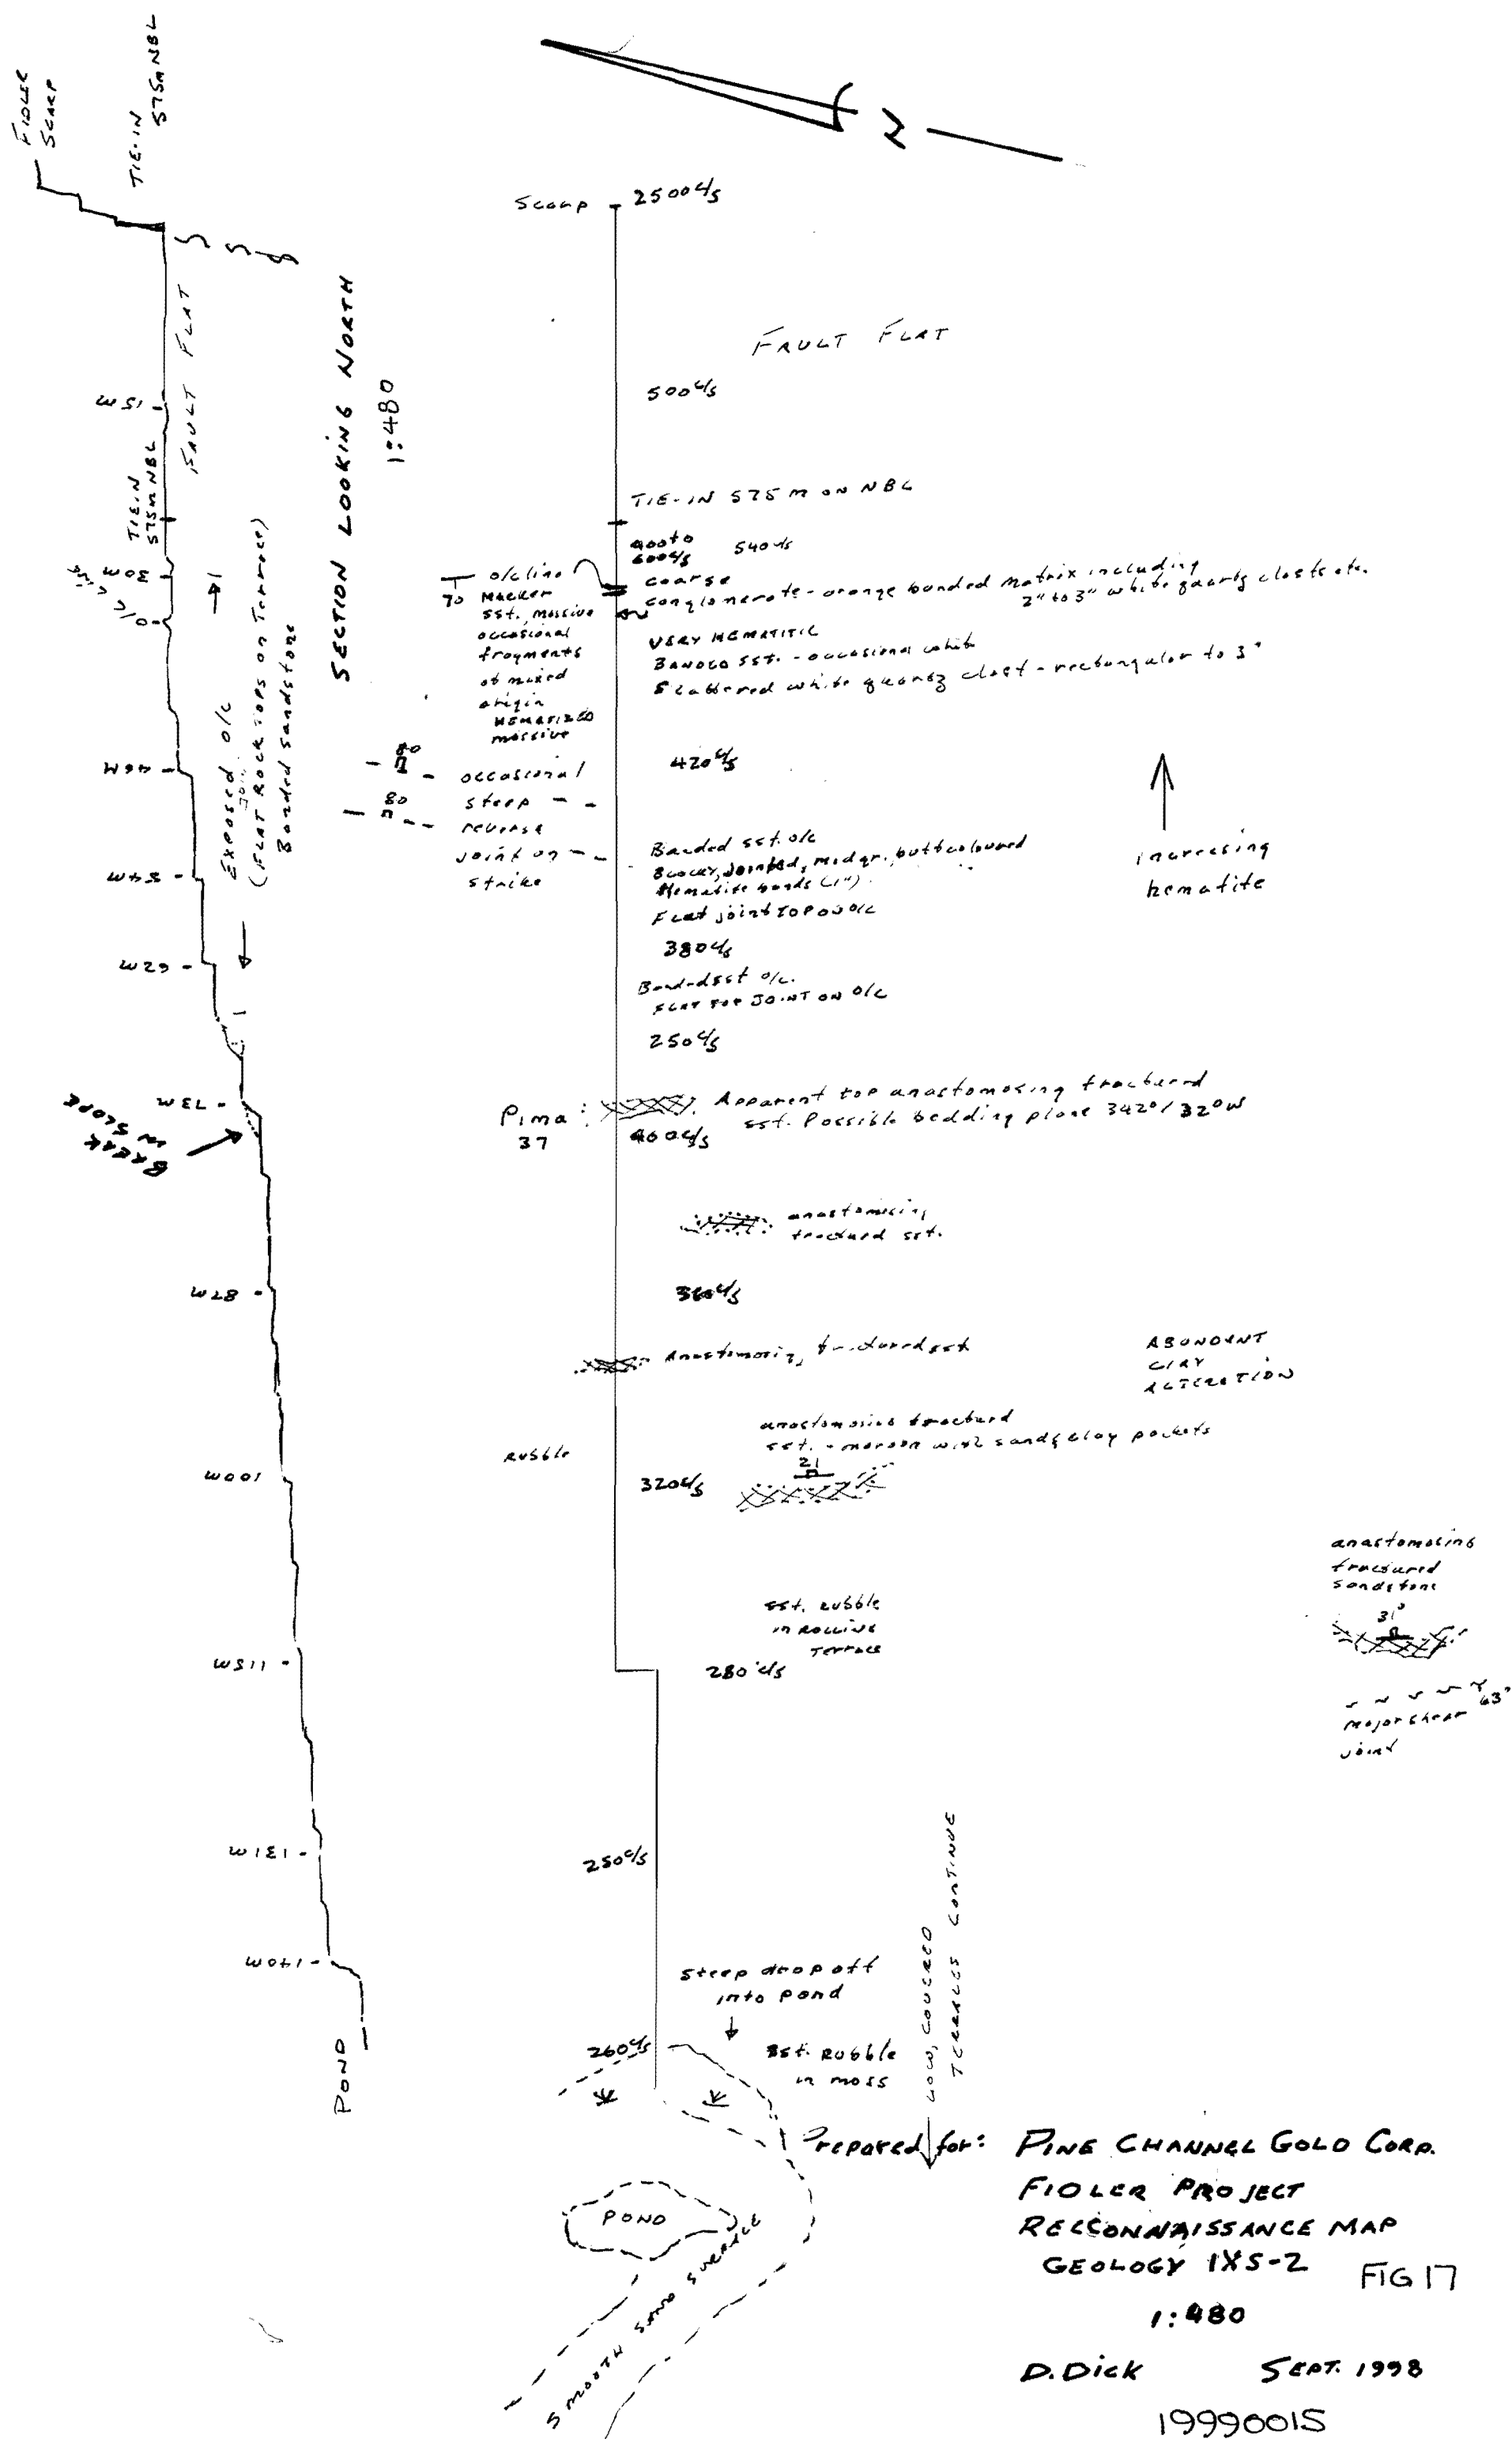 FIDLER
SCARP
TIE-IN
575M NBL
FAULT FLAT
15M
TIE-IN
575M NBL
30M
O/C LINE
46M
54M
62M
73M
BREAK
IN SLOPE
87M
100M
115M
131M
140M
POND
EXPOSED O/C
(FLAT ROCK TOPS ON Terrace)
Banded sandstone
SECTION LOOKING NORTH
1:480
Scarp
2500 c/s
FAULT FLAT
500 c/s
TIE-IN 575 M ON NBL
400 to
600 c/s
540 c/s
o/c line
70
Marker
sst., massive
occasional
fragments
of mixed
origin
HEMATIZED
massive
coarse
conglomerate - orange banded matrix including
2" to 3" white quartz clasts etc.
VERY HEMATITIC
BANDED SST. - occasional white
Scattered white quartz clast - rectangular to 3"
80
80
occasional
steep
reverse
joint on
strike
420 c/s
Banded sst. o/c
Blocky, Jointed, mid gr., buff coloured
Hematite bands (1")
Flat joint TOP ON O/C
380 c/s
Banded sst o/c.
FLAT TOP JOINT ON O/C
250 c/s
increasing
hematite
Pima:
37
Apparent top anastomosing fractured
sst. Possible bedding plane 342°/32°W
460 c/s
anastomosing
fractured sst.
360 c/s
Anastomosing fractured sst
ABUNDANT
CLAY
ALTERATION
anastomosing fractured
sst. - maroon with sand & clay pockets
21
RUBBLE
320 c/s
sst. RUBBLE
in ROLLING
Terrace
280 c/s
anastomosing
fractured
sandstone
31°
63°
Major shear
joint
250 c/s
LOW, COVERED
TERRACES CONTINUE
Steep drop off
into pond
260 c/s
Sst. Rubble
in moss
POND
SMOOTH SAND SURFACE
Prepared for: PINE CHANNEL GOLD CORP.
FIDLER PROJECT
RECCONNAISSANCE MAP
GEOLOGY 1XS-2
FIG 17
1:480
D. Dick SEPT. 1998
19990015